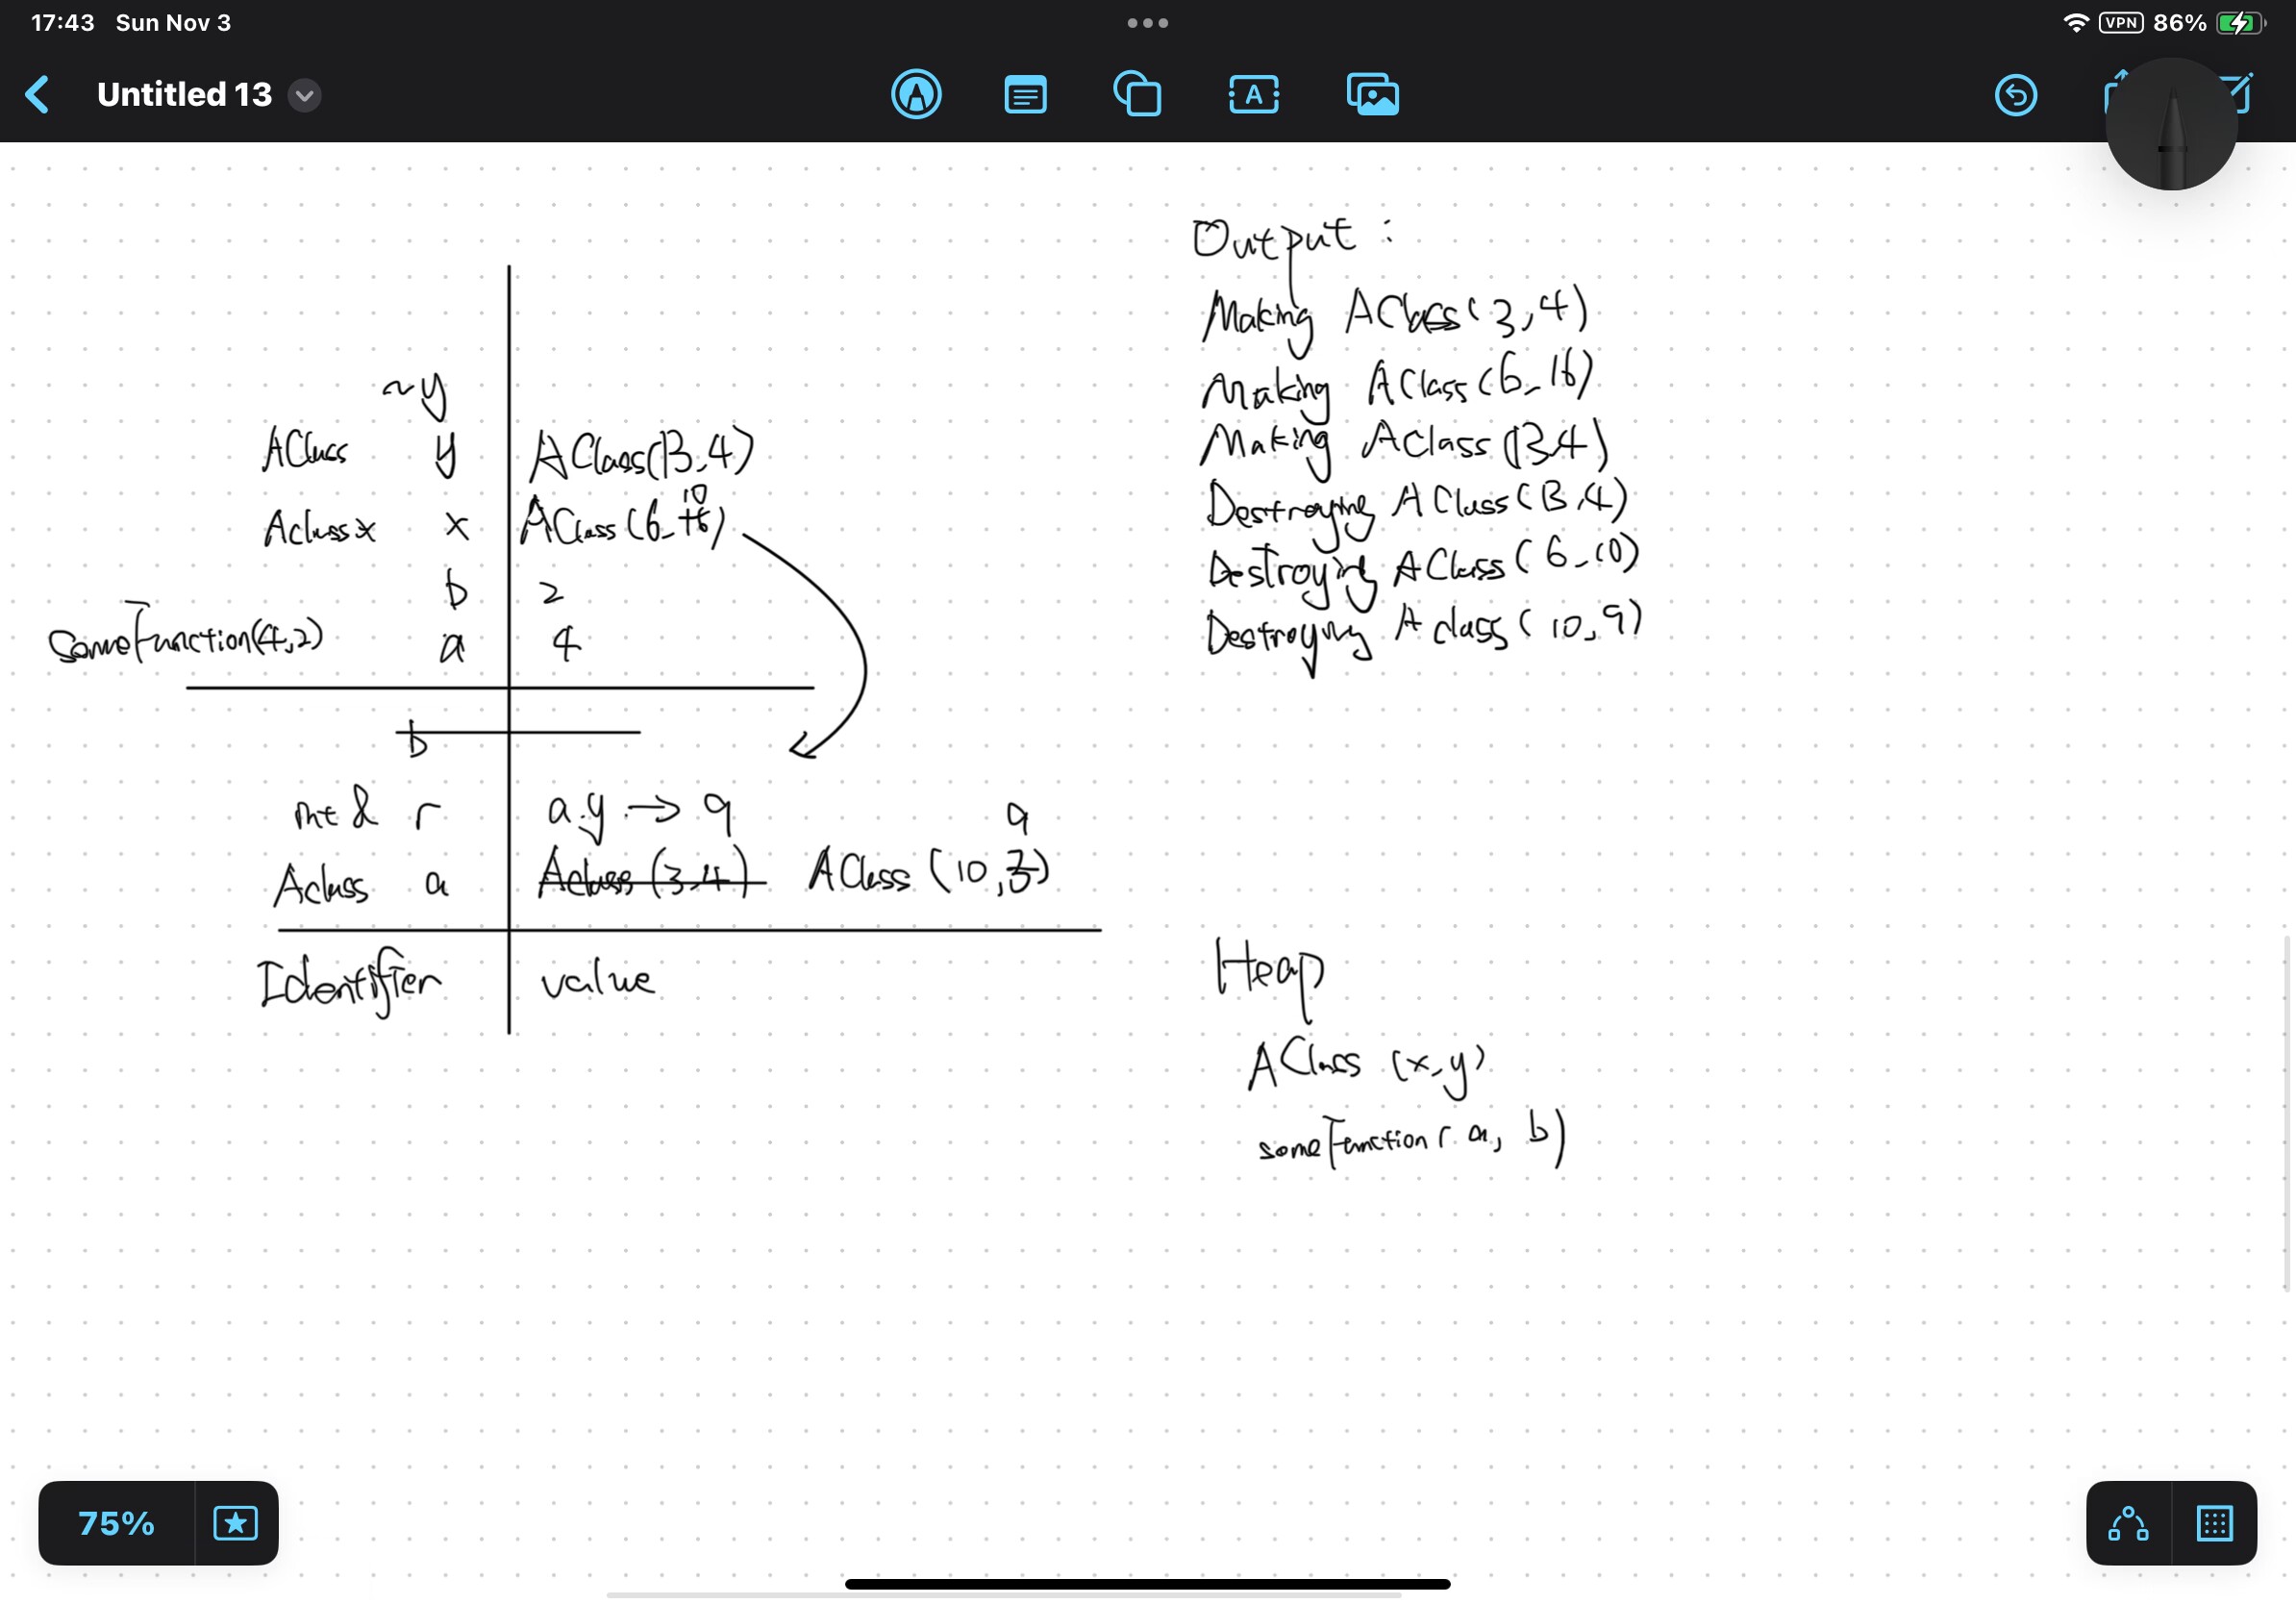 17:43 Sun Nov 3
VPN 86%
Untitled 13
A
~y
AClass y AClass(13,4)
AClass x AClass(6,16) 10
b 2
SomeFunction(4,2) a 4
b
int & r a.y → 9
9
AClass a AClass (3,4) AClass (10,
Identifier value
Output :
Making AClass(3,4)
Making AClass(6,16)
Making AClass(13,4)
Destroying AClass(13,4)
Destroying AClass(6,10)
Destroying Aclass(10,9)
Heap
AClass (x,y)
someFunction( a, b)
75%